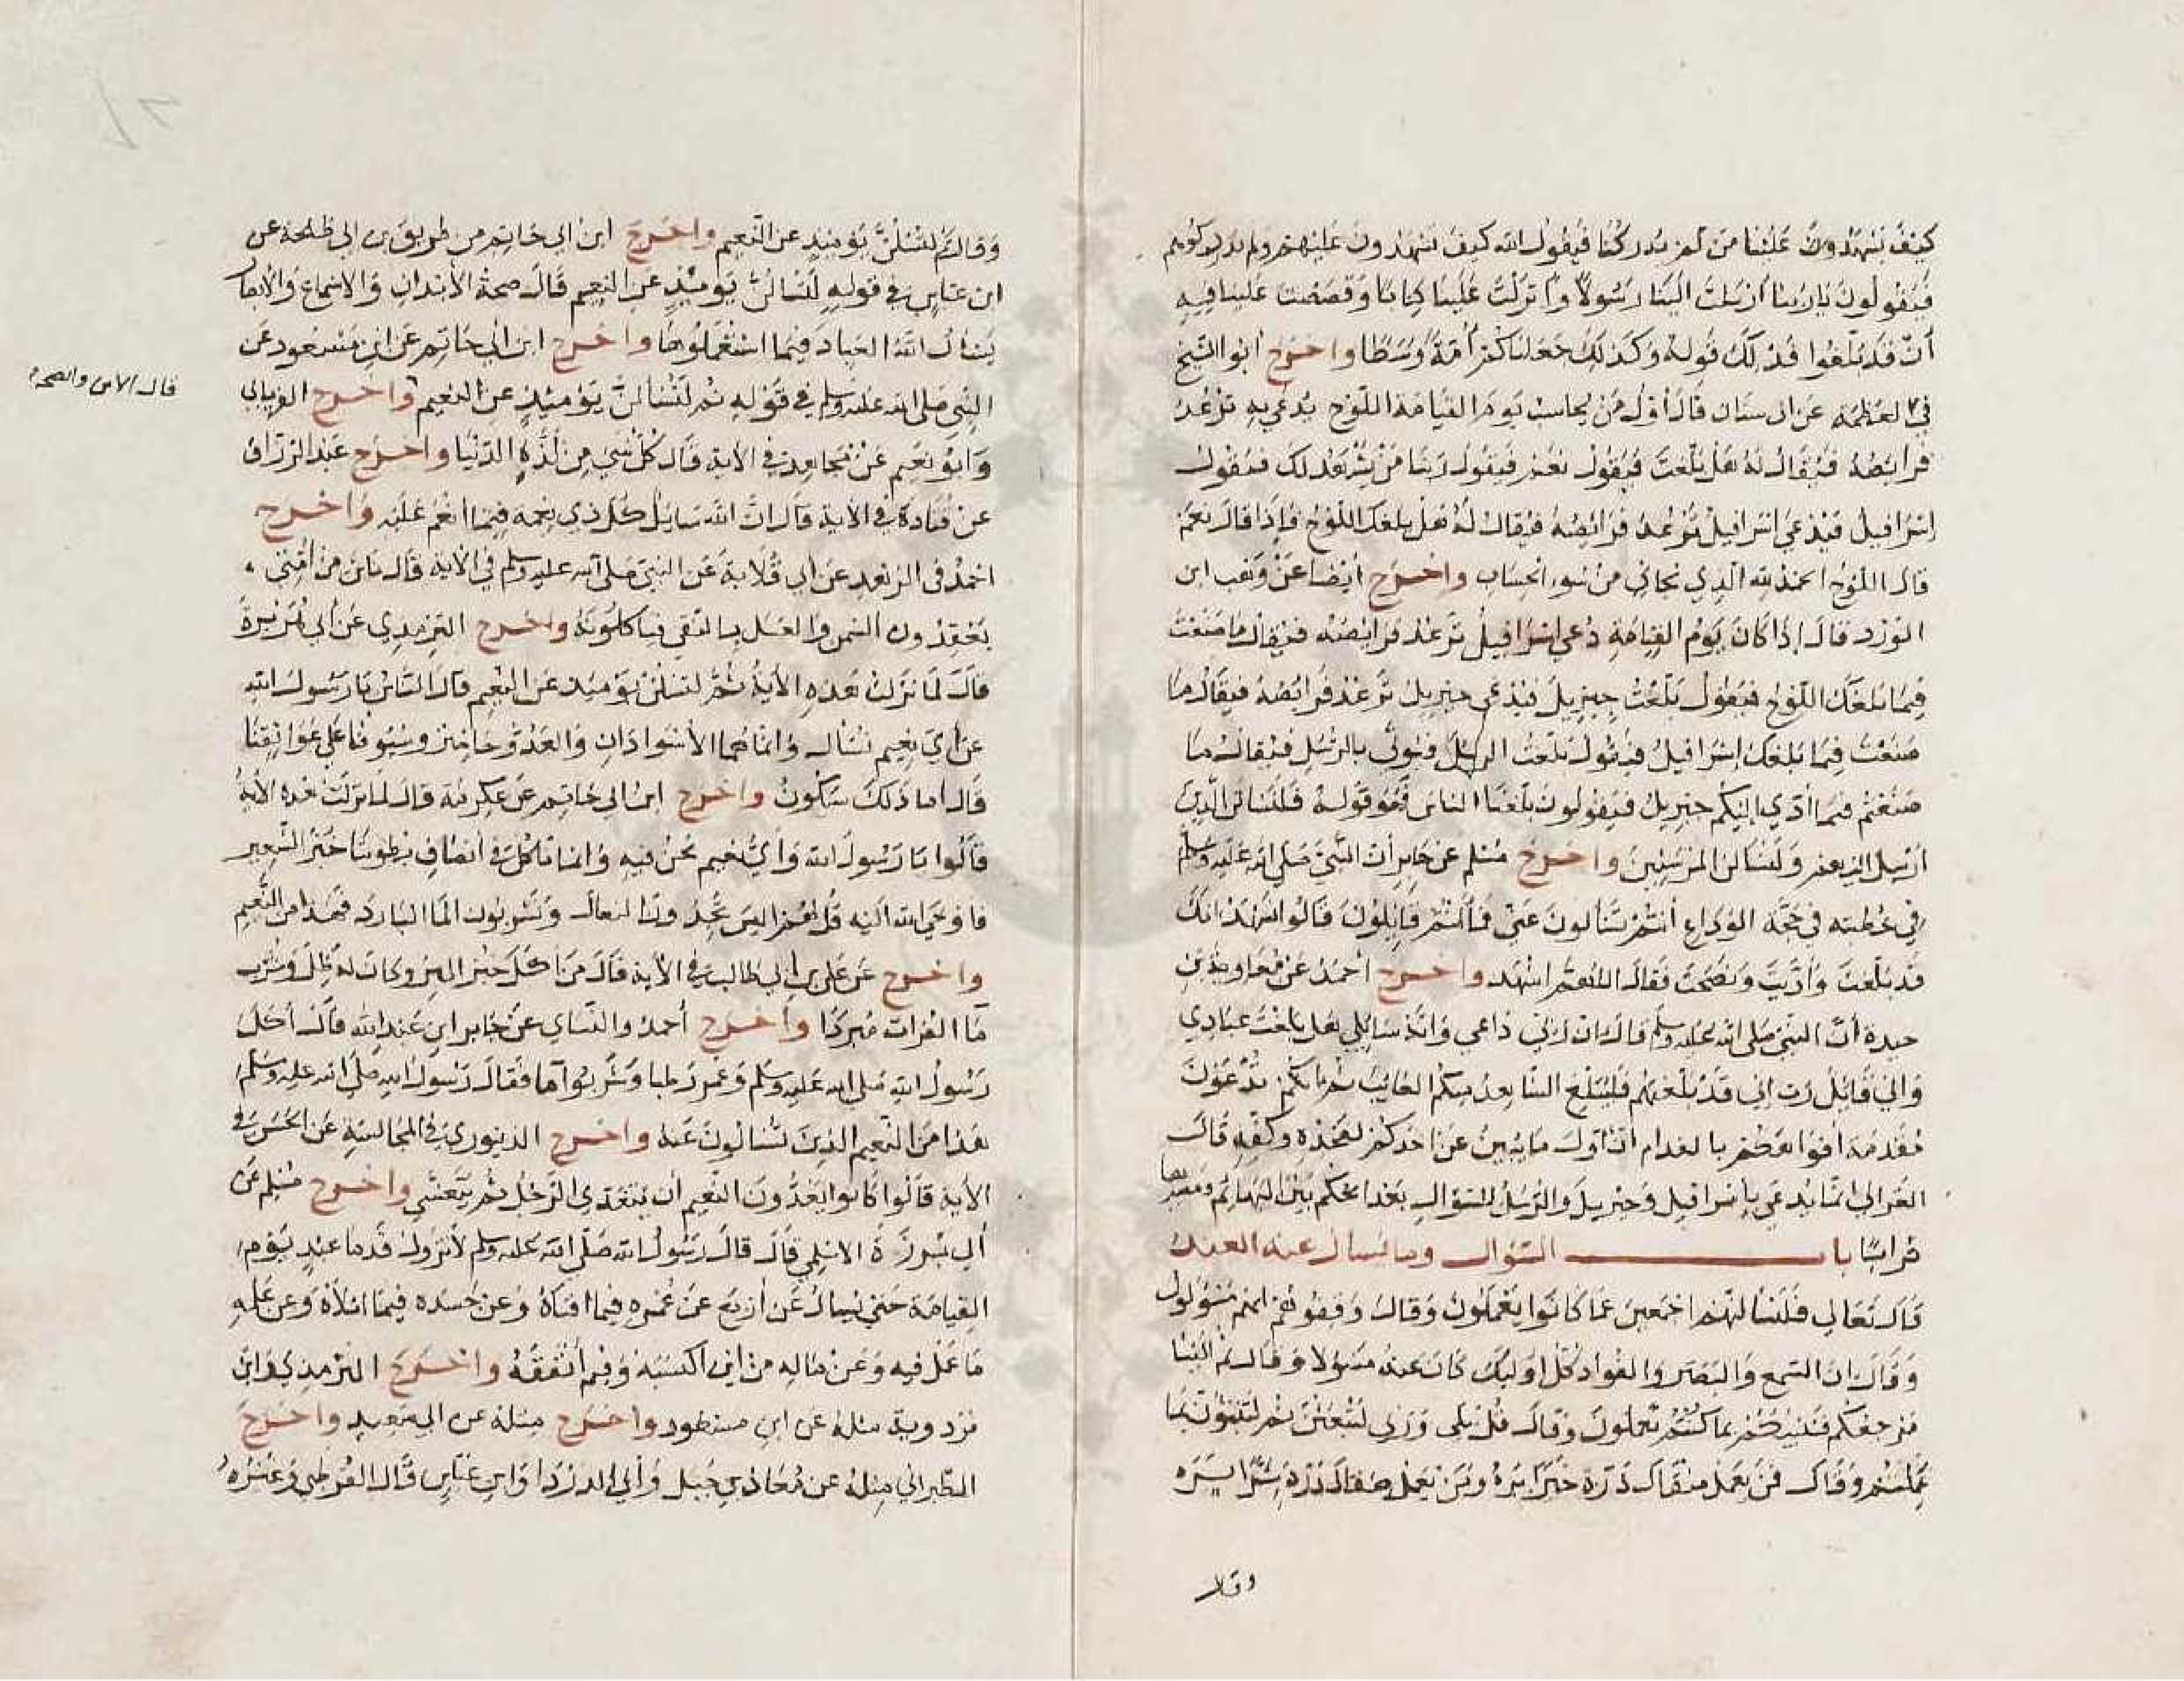 كيف تشهدون علينا من لم يدركنا فيقول الله كيف تشهدون عليهم ولم تدركوهم
فيقولون يا ربنا أرسلت الينا رسولا وأنزلت علينا كتابا وقصصت علينا فيه
أن قد بلغوا فذلك قوله وكذلك جعلناكم أمة وسطا واخرج أبو الشيخ
في العظمة عن ابي سنان قال أول من يحاسب يوم القيامة اللوح يدعى به ترعد
فرائصه فيقال له هل بلغت فيقول نعم فيقول ربنا من يشهد لك فيقول
إسرافيل فيدعى اسرافيل ترعد فرائصه فيقال له هل بلغك اللوح فإذا قال نعم
قال اللوح الحمد لله الذي نجاني من سوء الحساب واخرج أيضا عن وهب ابن
الورد قال إذا كان يوم القيامة دعي اسرافيل ترعد فرائصه فيقال ما صنعت
فيما بلغك اللوح فيقول بلغت جبريل فيدعى جبريل ترعد فرائصه فيقال ما
صنعت فيما بلغك إسرافيل فيقول بلغت الرسل فيؤتى بالرسل فيقال ما
صنعتم فيما أدى إليكم جبريل فيقولون بلغنا الناس فهو قوله فلنسألن الذين
أرسل اليهم ولنسألن المرسلين واخرج مسلم عن جابر أن النبي صلى الله عليه وسلم
في خطبته في حجة الوداع أنتم تسألون عني فما أنتم قائلون قالوا نشهد انك
قد بلغت وأديت ونصحت فقال اللهم اشهد واخرج أحمد عن معاوية بن
حيدة أن النبي صلى الله عليه وسلم قال ان ربي داعي وانه سايلي هل بلغت عبادي
واني قائل رب اني قد بلغتهم فليبلغ الشاهد منكم الغائب ثم انكم تدعون
مفدمة أفواهكم بالفدام ان أول ما يبين عن احدكم لفخذه وكفه قال
الغزالي انما يدعى بإسرافيل وجبريل والرسل للسؤال بعد الحكم بين البهائم ومصيرها
ترابا باب السؤال وما يسال عنه العبد
قال تعالى فلنسألنهم اجمعين عما كانوا يعملون وقال وقفوهم انهم مسؤلون
وقال ان السمع والبصر والفواد كل اوليك كان عنه مسؤلا وقال ثم الينا
مرجعكم فننبئكم بما كنتم تعملون وقال قل بلى وربي لتبعثن ثم لتنبؤن بما
عملتم وقال فمن يعمل مثقال ذرة خيرا يره ومن يعمل مثقال ذرة شرا يره
وقال
وقال ثم لتسئلن يومئذ عن النعيم واخرج ابن ابي حاتم من طريق بن ابي طلحة عن
ابن عباس في قوله لتسألن يومئذ عن النعيم قال صحة الأبدان والاسماع والأبصار
يسأل الله العباد فيما استعملوها واخرج ابن أبي حاتم عن ابن مسعود عن
النبي صلى الله عليه وسلم في قوله ثم لتسألن يومئذ عن النعيم واخرج الفريابي
قال الامن والصحة
وابو نعيم عن مجاهد في الآية قال كل شي من لذة الدنيا واخرج عبد الرزاق
عن قتادة في الآية قال ان الله سايل كل ذي نعمه فيما انعم عليه واخرج
احمد في الزهد عن أبي قلابة عن النبي صلى الله عليه وسلم في الآية قال ناس من أمتي
يعقدون السمن والعسل بالنقي فياكلونه واخرج الترمذي عن أبي هريرة
قال لما نزلت هذه الآية ثم لتسئلن يومئذ عن النعيم قال الناس يا رسول الله
عن أي نعيم نسأل وانما هما الأسودان والعدو حاضر وسيوفنا على عواتقنا
قال اما ذلك سيكون واخرج ابن ابي حاتم عن عكرمة قال لما نزلت هذه الآية
قالوا يا رسول الله وأي نعيم نحن فيه وانما ناكل في أنصاف بطوننا خبز الشعير
فاوحى الله اليه قل لهم اليس تحتذون النعال وتشربون الما البارد فهذا من النعيم
واخرج عن علي بن ابي طالب في الآية قال من أكل خبز البر وكان له ظل وشرب
ما الفرات مبردا واخرج أحمد والنساي عن جابر ابن عبد الله قال أكل
رسول الله صلى الله عليه وسلم وعمر رطبا وشربوا ما فقال رسول الله صلى الله عليه وسلم
هذا من النعيم الذي تسألون عنه واخرج الدينوري في المجالسة عن الحسن في
الآية قالوا كانوا يعدون النعيم أن يتغدى الرجل ثم يتعشى واخرج مسلم عن
أبي برزة الاسلمي قال قال رسول الله صلى الله عليه وسلم لا تزول قدما عبد يوم
القيامة حتى يسال عن أربع عن عمره فيما افناه وعن جسده فيما ابلاه وعن علمه
ما عمل فيه وعن ماله من أين اكتسبه وفيم أنفقه واخرج الترمذي وابن
مردوية مثله عن ابن مسعود واخرج مثله عن ابي سعيد واخرج
الطبراني مثله عن معاذ بن جبل وأبي الدردا وابن عباس قال القرطبي وغيره